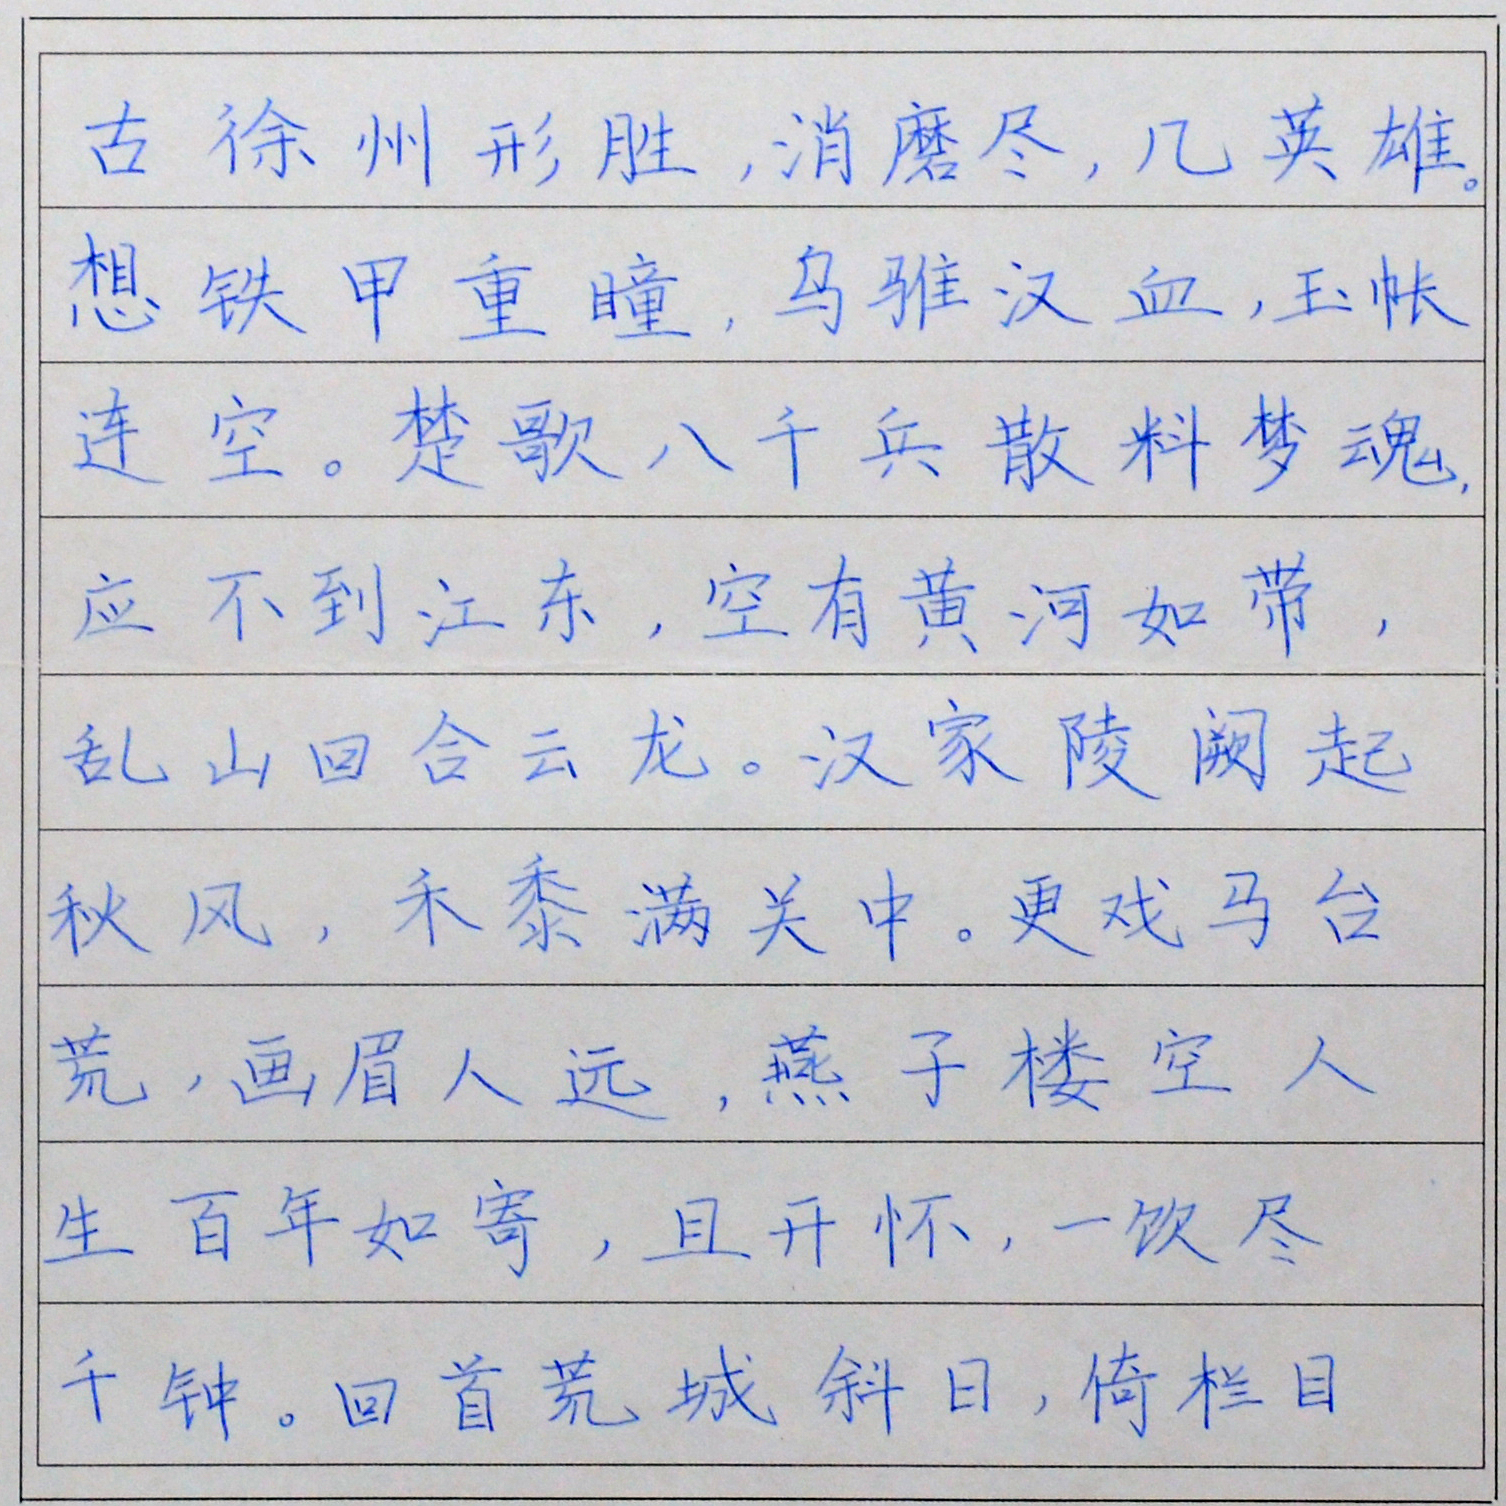 古徐州形胜,消磨尽,几英雄。
想铁甲重瞳,乌骓汉血,玉帐
连空。楚歌八千兵散料梦魂,
应不到江东,空有黄河如带,
乱山回合云龙。汉家陵阙起
秋风,禾黍满关中。更戏马台
荒,画眉人远,燕子楼空人
生百年如寄,且开怀,一饮尽
千钟。回首荒城斜日,倚栏目